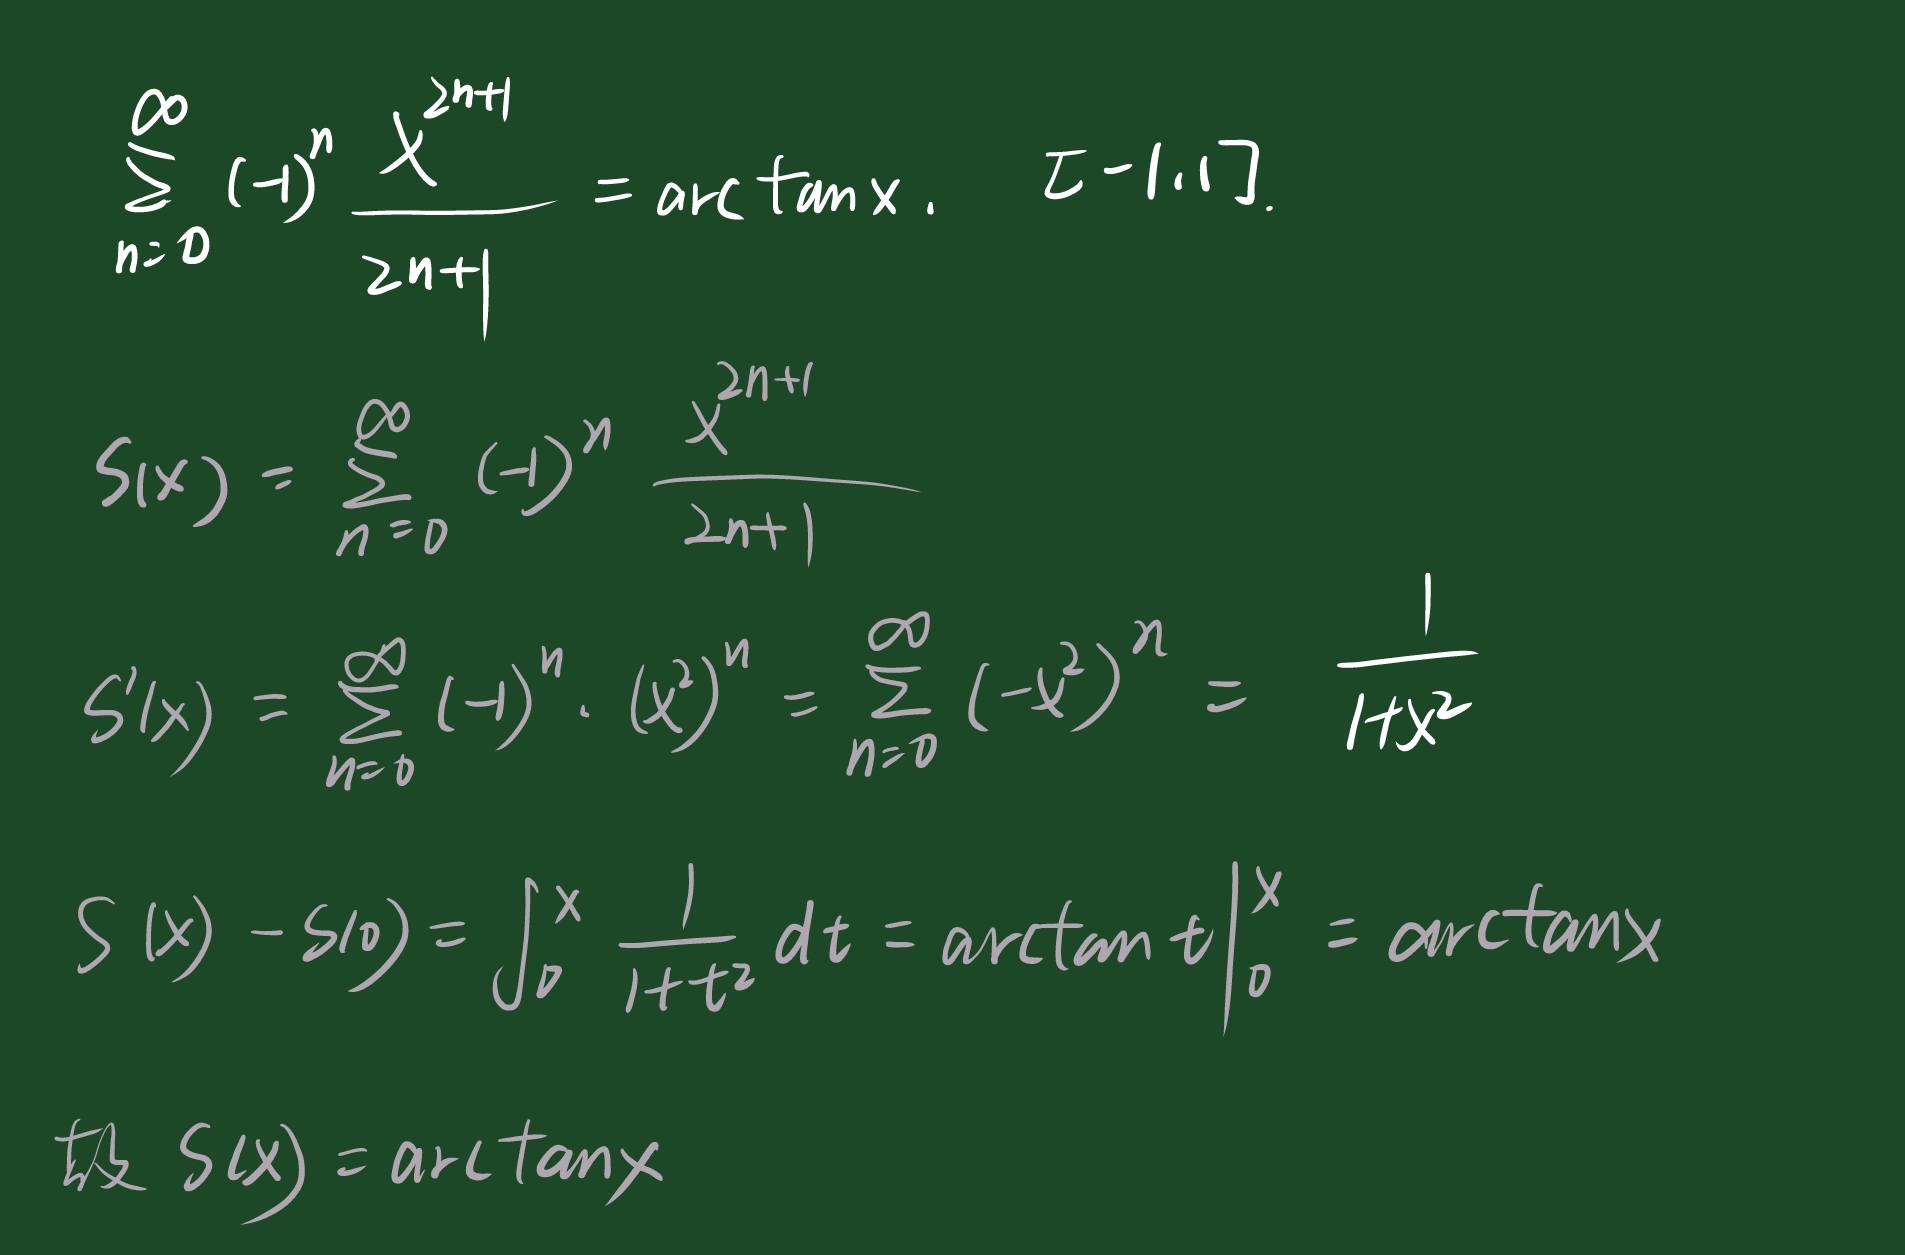 $\sum_{n=0}^{\infty} (-1)^n \frac{x^{2n+1}}{2n+1} = \arctan x. \quad [-1,1].$
$S(x) = \sum_{n=0}^{\infty} (-1)^n \frac{x^{2n+1}}{2n+1}$
$S'(x) = \sum_{n=0}^{\infty} (-1)^n \cdot (x^2)^n = \sum_{n=0}^{\infty} (-x^2)^n = \frac{1}{1+x^2}$
$S(x) - S(0) = \int_0^x \frac{1}{1+t^2} dt = \arctan t \Big|_0^x = \arctan x$
故 $S(x) = \arctan x$